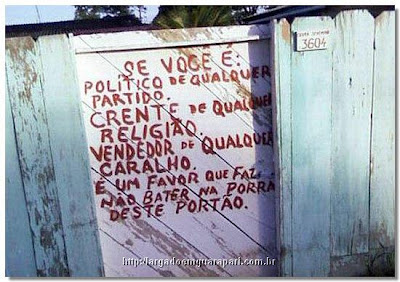 3604
SE VOCÊ É:
POLÍTICO DE QUALQUER
PARTIDO.
CRENTE DE QUALQUER
RELIGIÃO.
VENDEDOR DE QUALQUER
CARALHO.
É UM FAVOR QUE FAZ.
NÃO BATER NA PORRA
DESTE PORTÃO.
http://largadoemguarapari.com.br